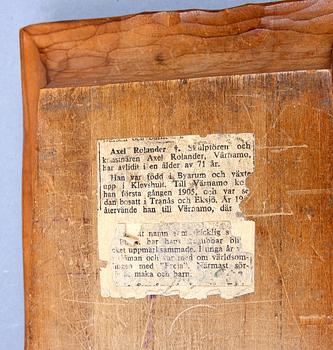 Axel Rolander †. Skulptören och
konstnären Axel Rolander, Värnamo,
har avlidit i en ålder av 71 år.
Han var född i Byarum och växte
upp i Klevshult. Till Värnamo ko
han första gången 1905, och var se
dan bosatt i Tranås och Eksjö. År 19
återvände han till Värnamo, där
tt namn som skicklig s
har hans gubbar bli
ket uppmärksammade. I unga år v
man och var med om världsom-
ingen med "Freja". Närmast sör-
maka och barn.